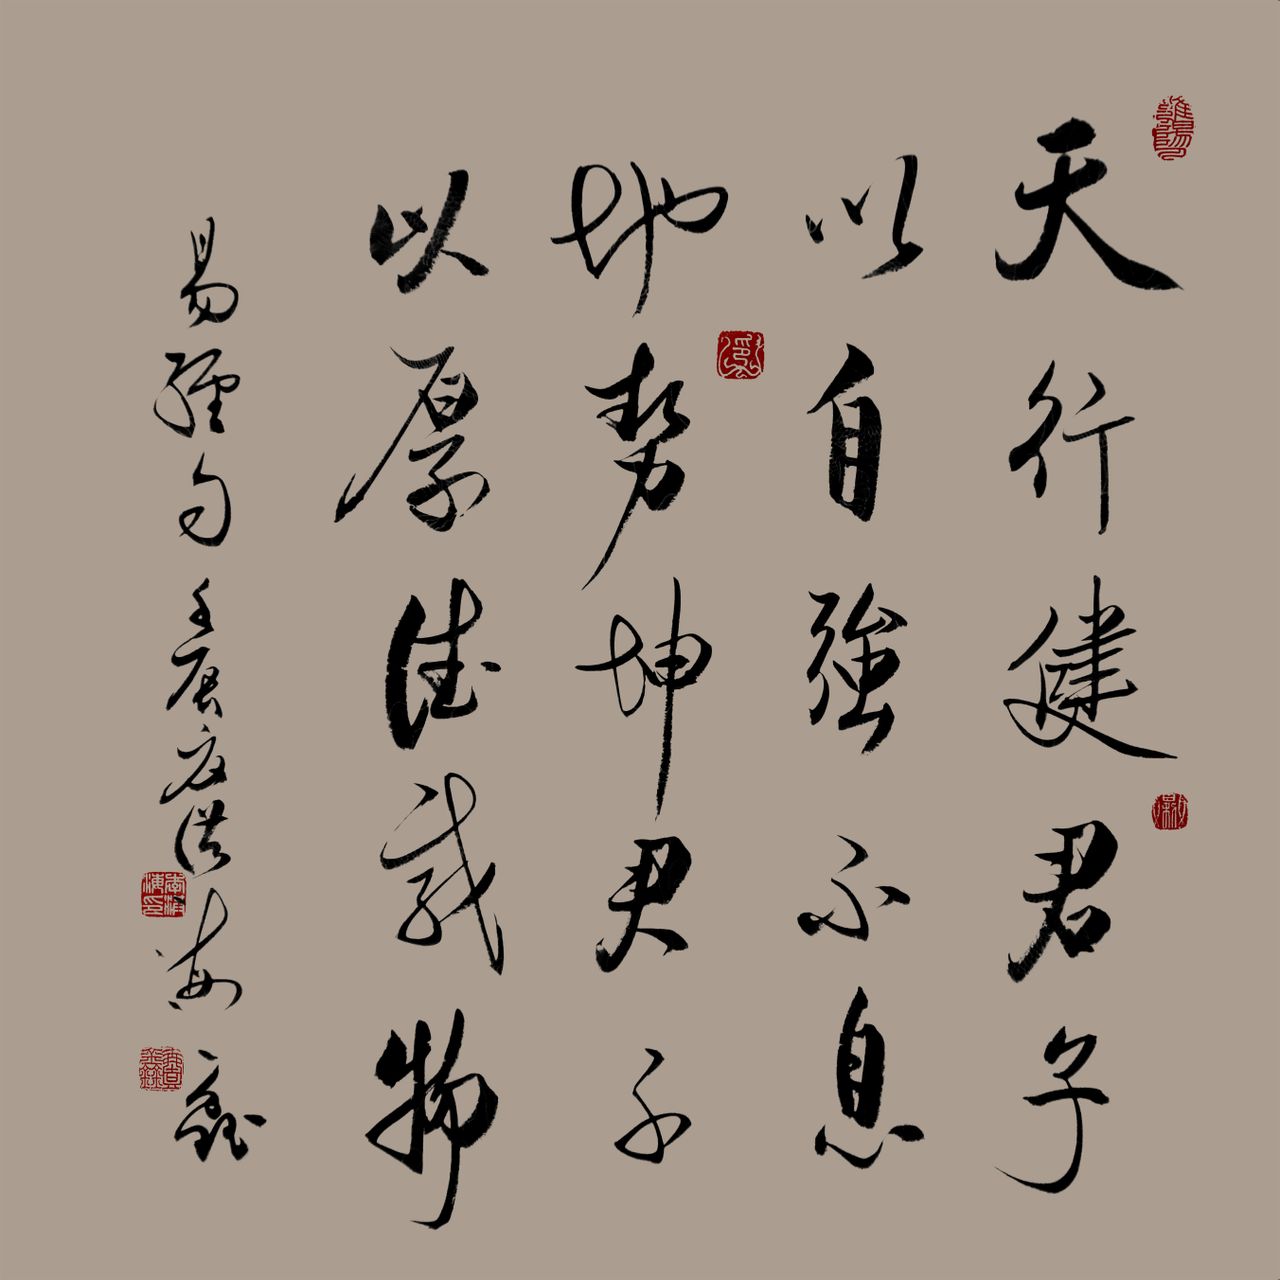 天行健君子
以自強不息
地势坤君子
以厚德载物
易經句壬辰夜洪海鑫